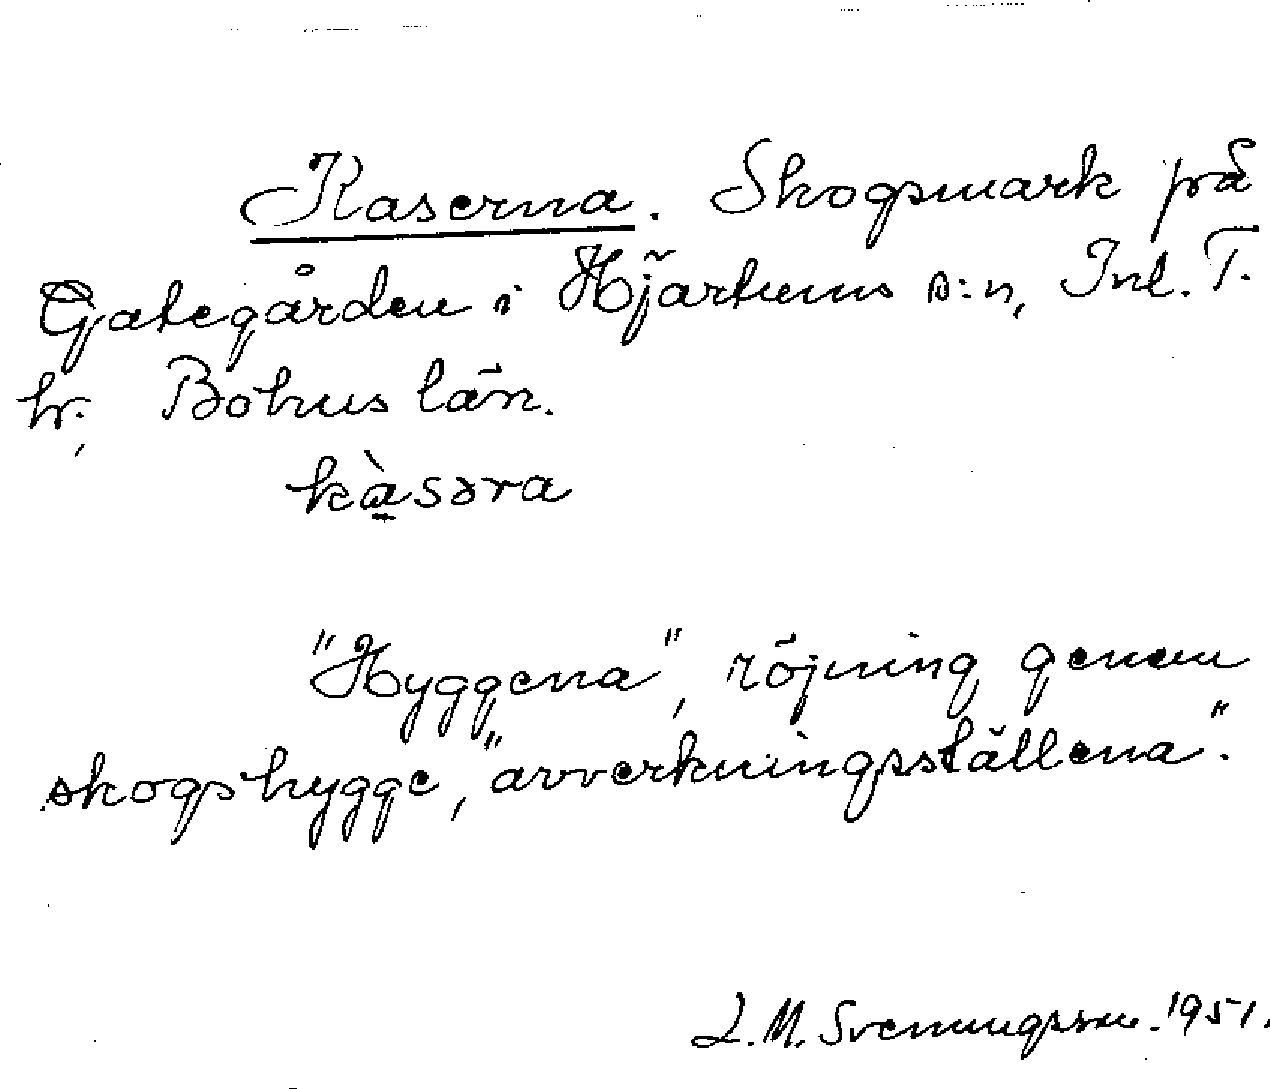 Kaserna. Skogsmark på
Gategården i Hjärtums s:n, Inl. T.
hr., Bohus län.
kàsəra
"Hyggena", röjning genom
skogshygge, "avverkningsställena".
L.M. Svenungsson. 1951.